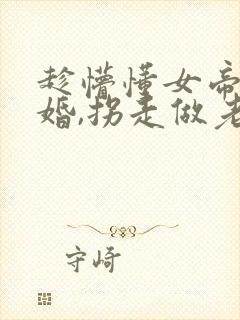 趁懵懂女帝
婚,拐走做老
守崎